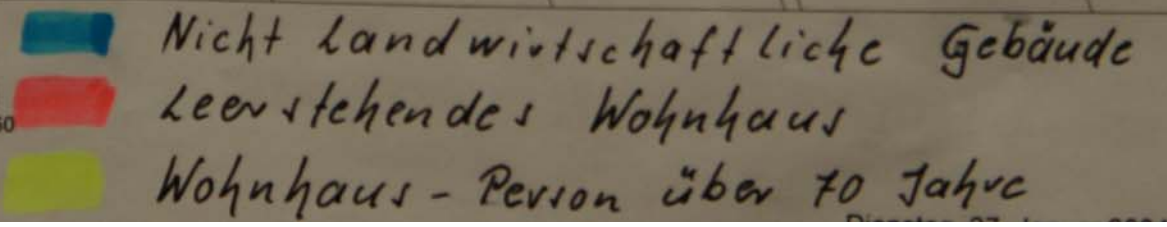 Nicht Landwirtschaftliche Gebäude
Leerstehendes Wohnhaus
Wohnhaus - Person über 70 Jahre